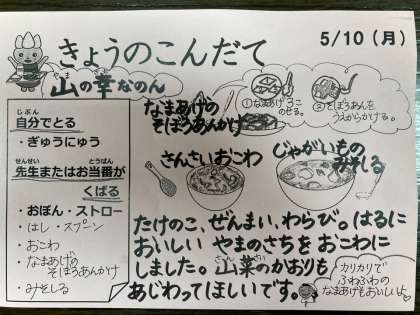 きょうのこんだて
5/10（月）
山の幸なのん
なまあげの
そぼろあんかけ
①なまあげ3こ
のせる。
②そぼろあんを
うえからかける。
じぶん
自分でとる
・ぎゅうにゅう
せんせい とうばん
先生またはお当番が
くばる
・おぼん・ストロー
・はし・スプーン
・おこわ
・なまあげの
そぼろあんかけ
・みそしる
さんさいおこわ
じゃがいもの
みそしる
たけのこ、ぜんまい、わらび。はるに
おいしい やまのさちを おこわに
しました。山菜のかおりも
さんさい
あじわってほしいです。
カリカリで
ふわふわの
なまあげもおいしいよ